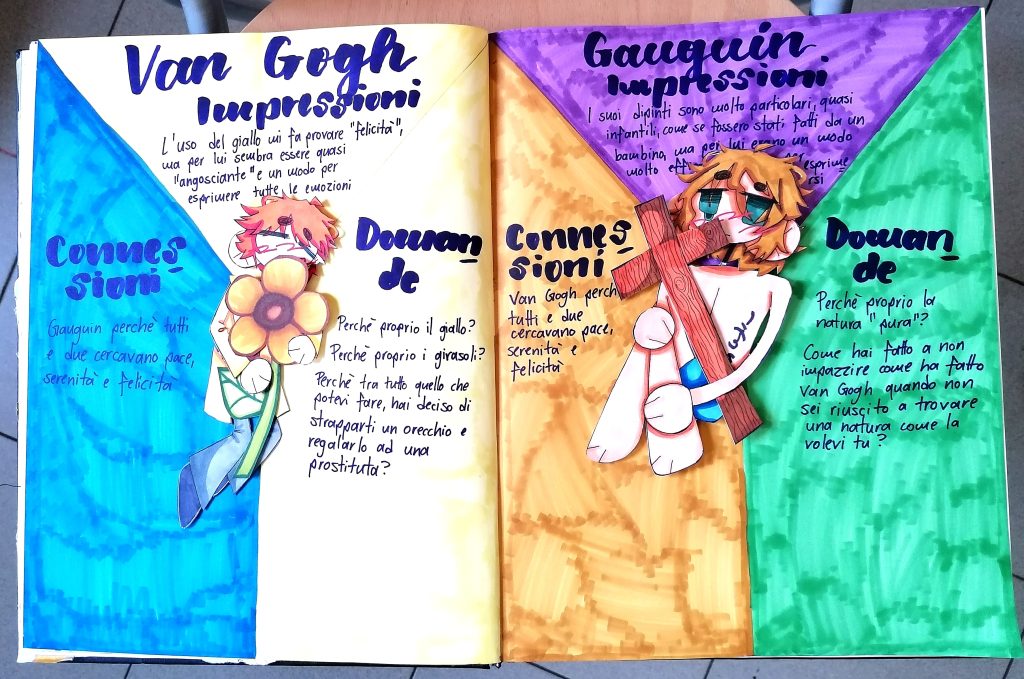 Van Gogh
Impressioni
L'uso del giallo mi fa provare "felicità",
ma per lui sembra essere quasi
"angosciante" e un modo per
esprimere tutte le emozioni
Connes
sioni
Gauguin perchè tutti
e due cercavano pace,
serenità e felicità
Doman
de
Perchè proprio il giallo?
Perchè proprio i girasoli?
Perchè tra tutto quello che
potevi fare, hai deciso di
strapparti un orecchio e
regalarlo ad una
prostituta?
Gauguin
Impressioni
I suoi dipinti sono molto particolari, quasi
infantili, come se fossero stati fatti da un
bambino, ma per lui erano un modo
molto
Connes
sioni
Van Gogh perchè
tutti e due
cercavano pace,
serenità e
felicità
Doman
de
Perchè proprio la
natura "pura"?
Come hai fatto a non
impazzire come ha fatto
Van Gogh quando non
sei riuscito a trovare
una natura come la
volevi tu?